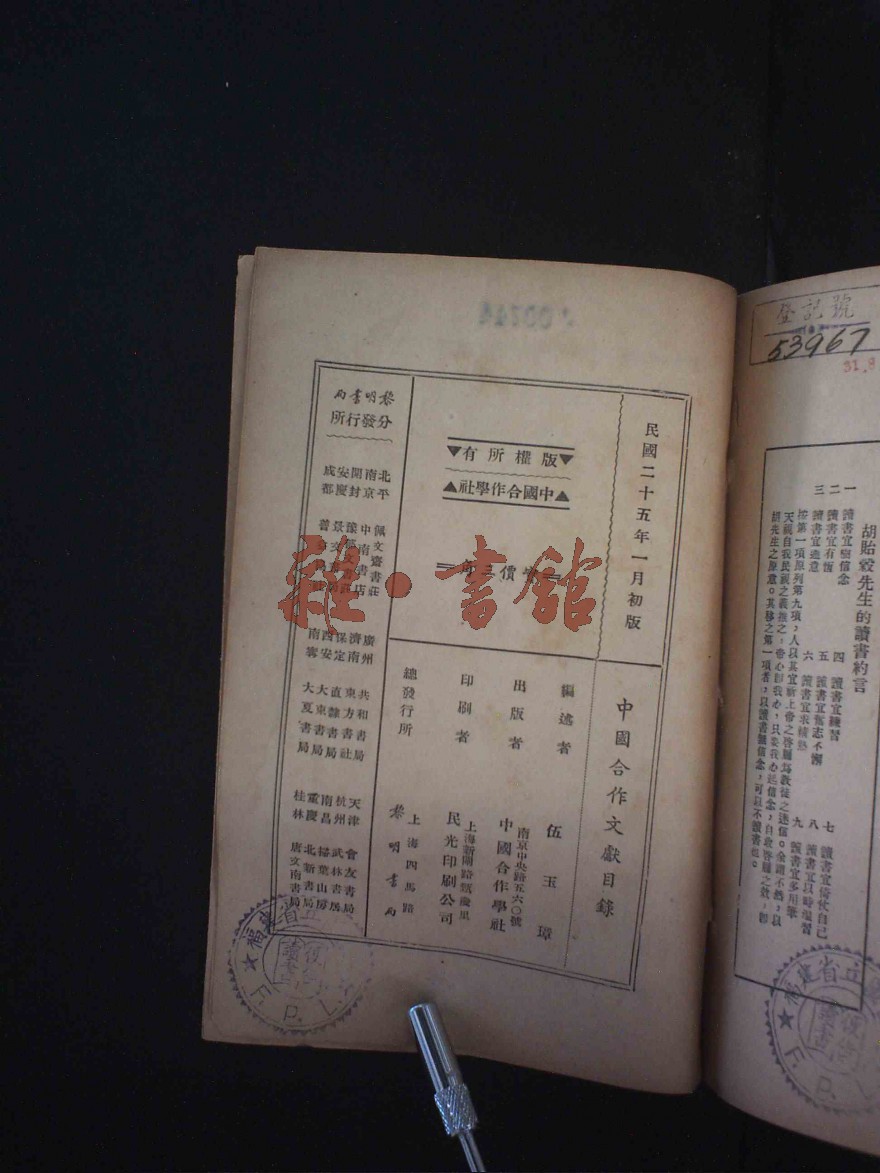 民國二十五年一月初版
中國合作文獻目錄
版權所有
中國合作學社
價三角
編述者 伍玉璋
出版者 南京中央路五六〇號
中國合作學社
印刷者 上海新閘路
民光印刷公司
總發行所 上海四馬路
黎明書局
黎明書局
分發行所
北平 佩文齋書莊
南京 中南書店
開封
安慶
成都
廣州 共和書局
濟南 東方書社
保定 直隸書局
西安 大東書局
南寧 大夏書局
天津 會友書局
杭州 武林書局
南昌 掃葉山房
重慶 北新書局
桂林 唐文南書局
雜·書館
福建省立
F. P. L.
登記號
53967
31.8
胡貽穀先生的讀書約言
一 讀書宜樹信念
二 讀書宜有恆
三 讀書宜適意
四 讀書宜練習
五 讀書宜奮志不懈
六 讀書宜求精熟
七 讀書宜倚仗自己
八 讀書宜以時溫習
九 讀書宜多用筆
福建省立
F. P. L.